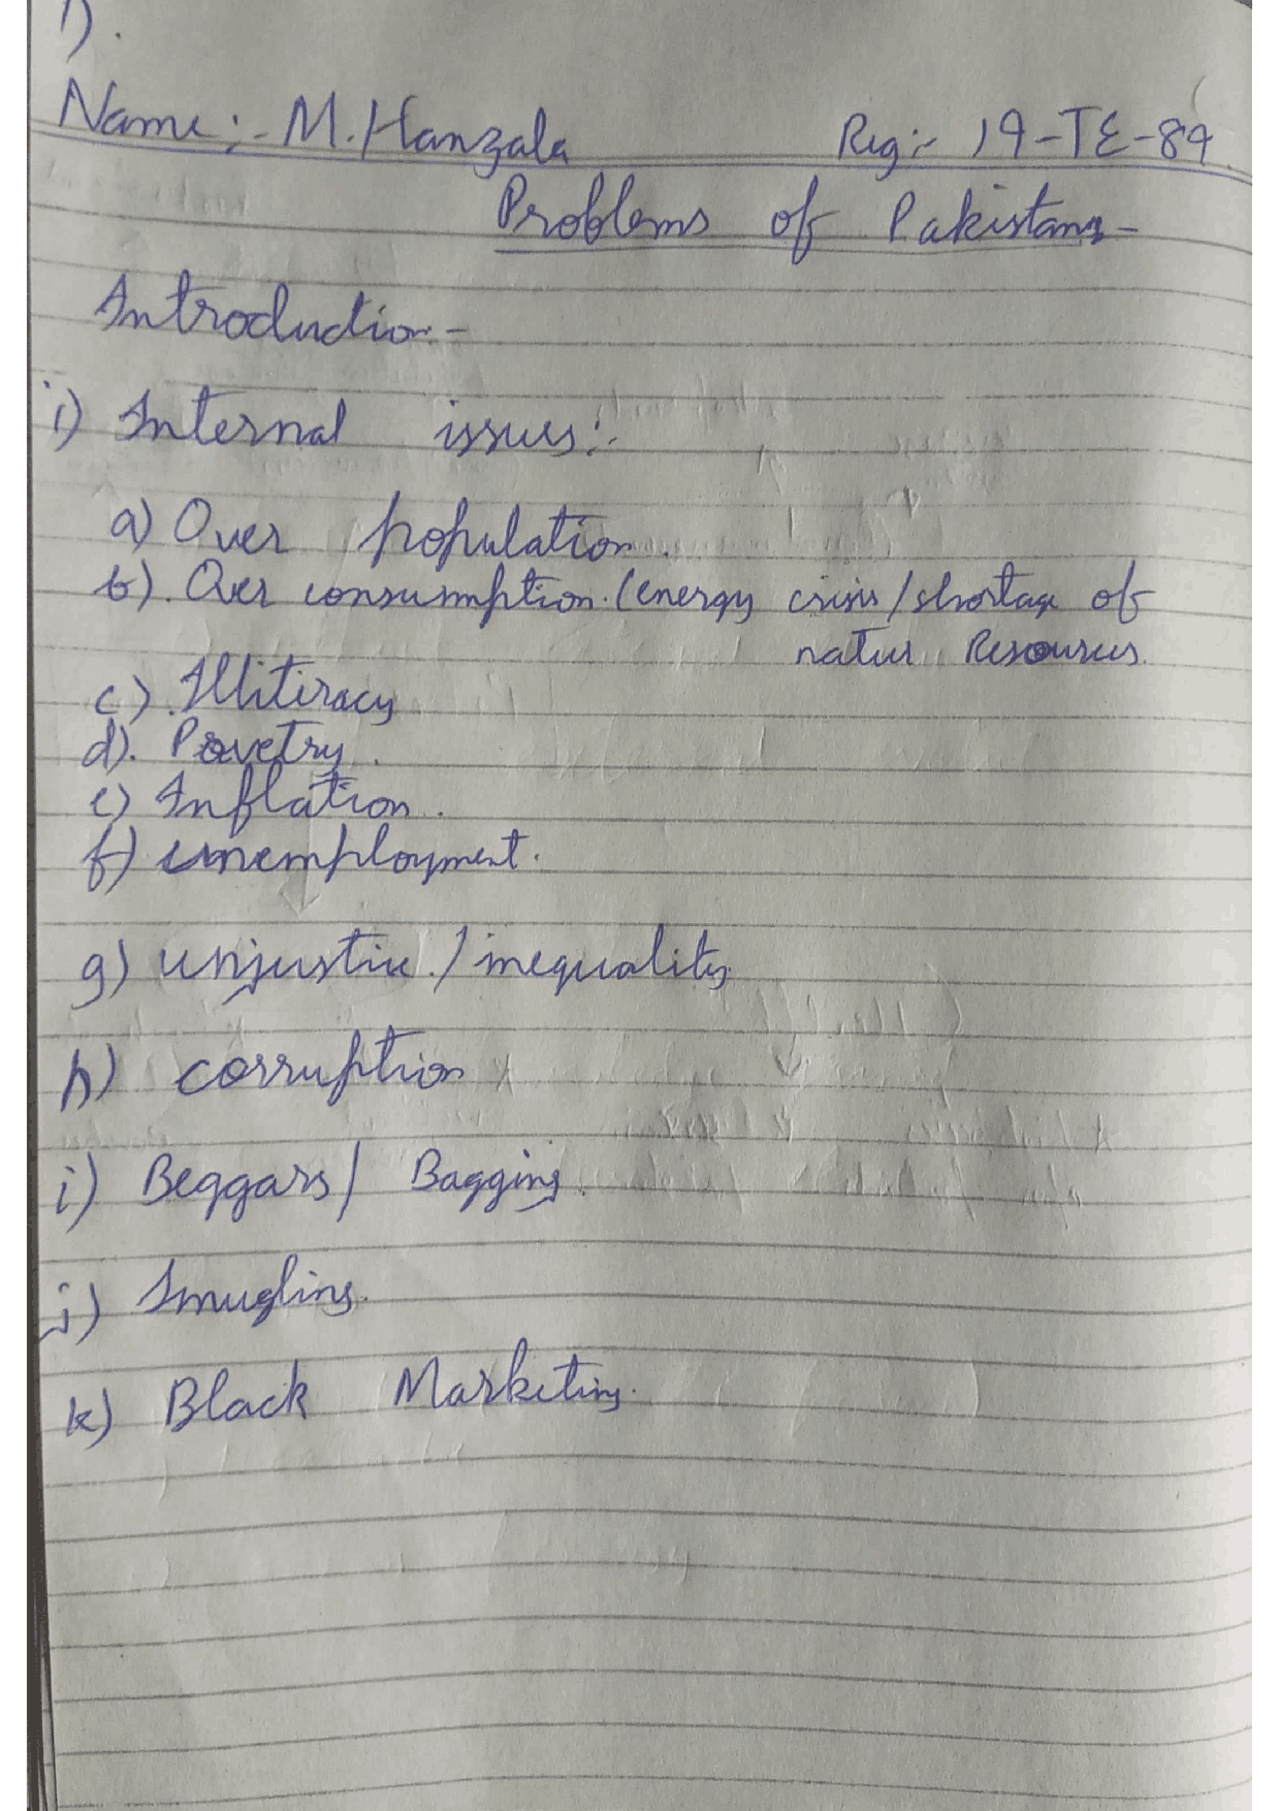 1).
Name:- M.Hanzala Reg:- 19-TE-89
Problems of Pakistan:-
Introduction:-
i) Internal issues:-
a) Over population.
b). Over consumption. (energy crisis/shortage of
natur Resources.
c). Illitiracy
d). Povetry.
e) Inflation.
f) unemployment.
g) unjustice./inequality.
h) corruption
i) Beggars/ Bagging.
j) Smugling.
k) Black Marketing.